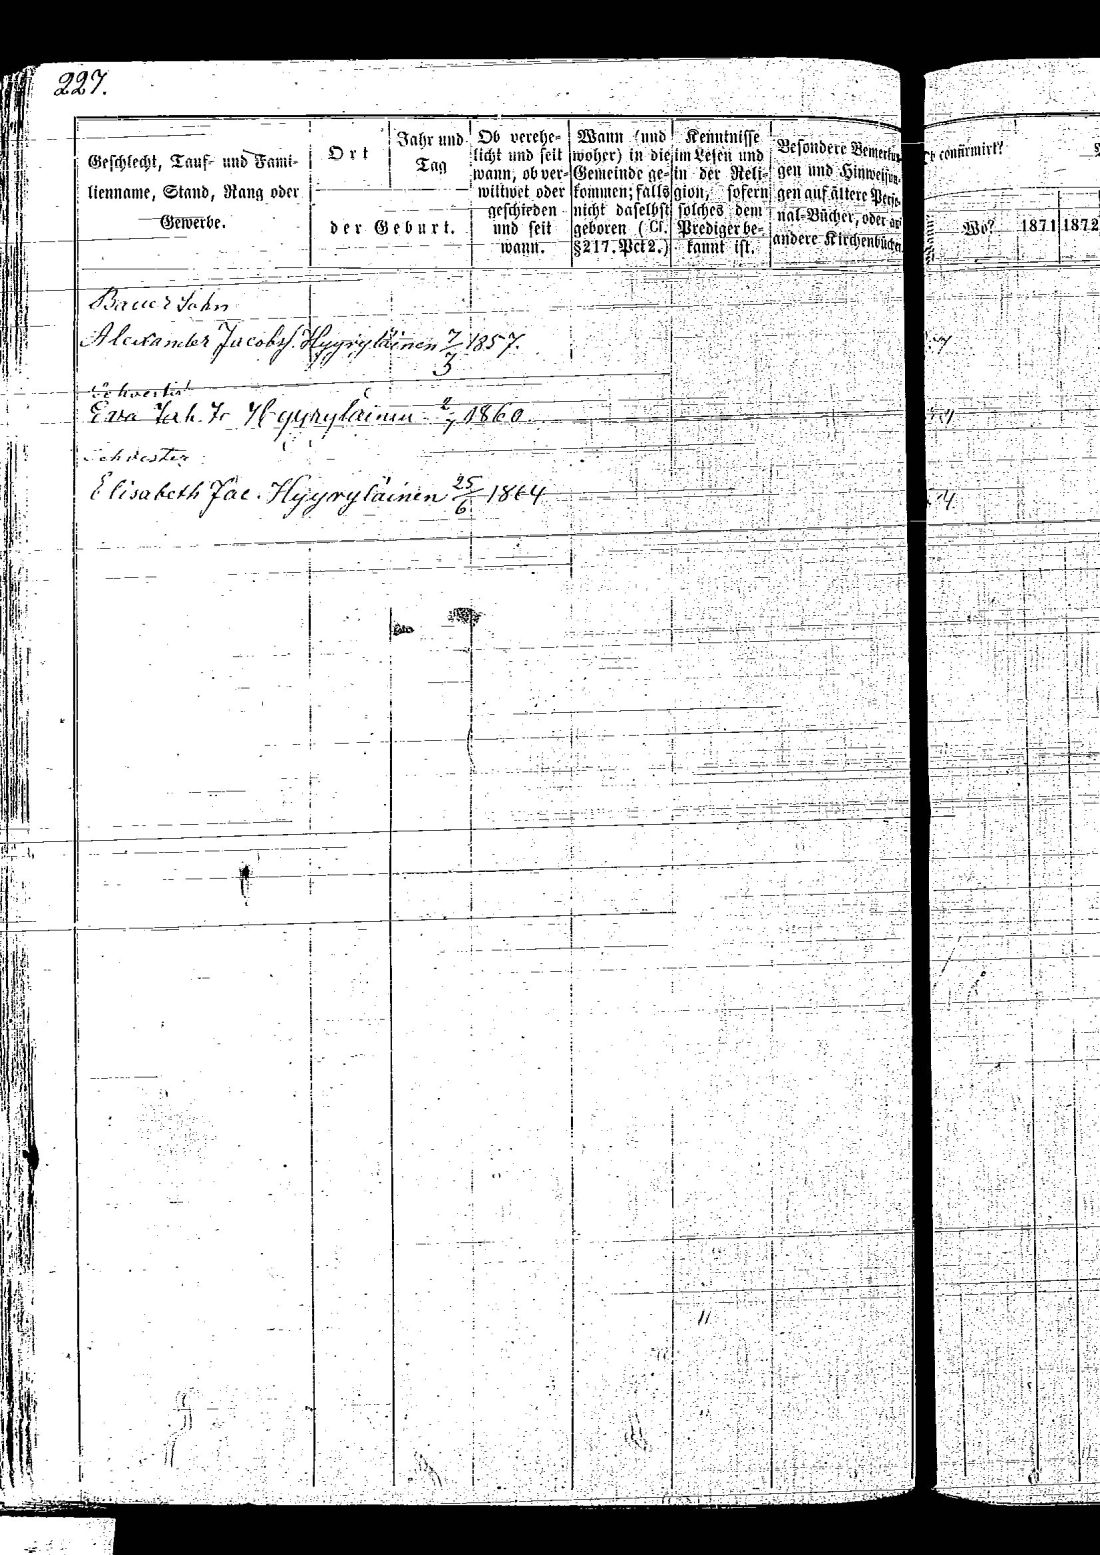 227.
Geschlecht, Tauf- und Fami-
lienname, Stand, Rang oder
Gewerbe.
Ort
Jahr und
Tag
der Geburt.
Ob verehe-
licht und seit
wann, ob ver-
wittwet oder
geschieden
und seit
wann.
Wann (und
woher) in die
Gemeinde ge-
kommen; falls
nicht daselbst
geboren (Cf.
§217. Pct 2.)
Kenntnisse
im Lesen und
in der Reli-
gion, sofern
solches dem
Prediger be-
kannt ist.
Besondere Bemerkun-
gen und Hinweisun-
gen auf ältere Perso-
nal-Bücher, oder
andere Kirchenbücher
confirmirt?
Wo?
1871
1872
Bauer Sohn
Alexander Jacobs. Hyyryläinen 7/3 1857.
Schwester
Eva Jak. Hyyryläinen 2/7 1860.
Schwester
Elisabeth Jac. Hyyryläinen 25/6 1864